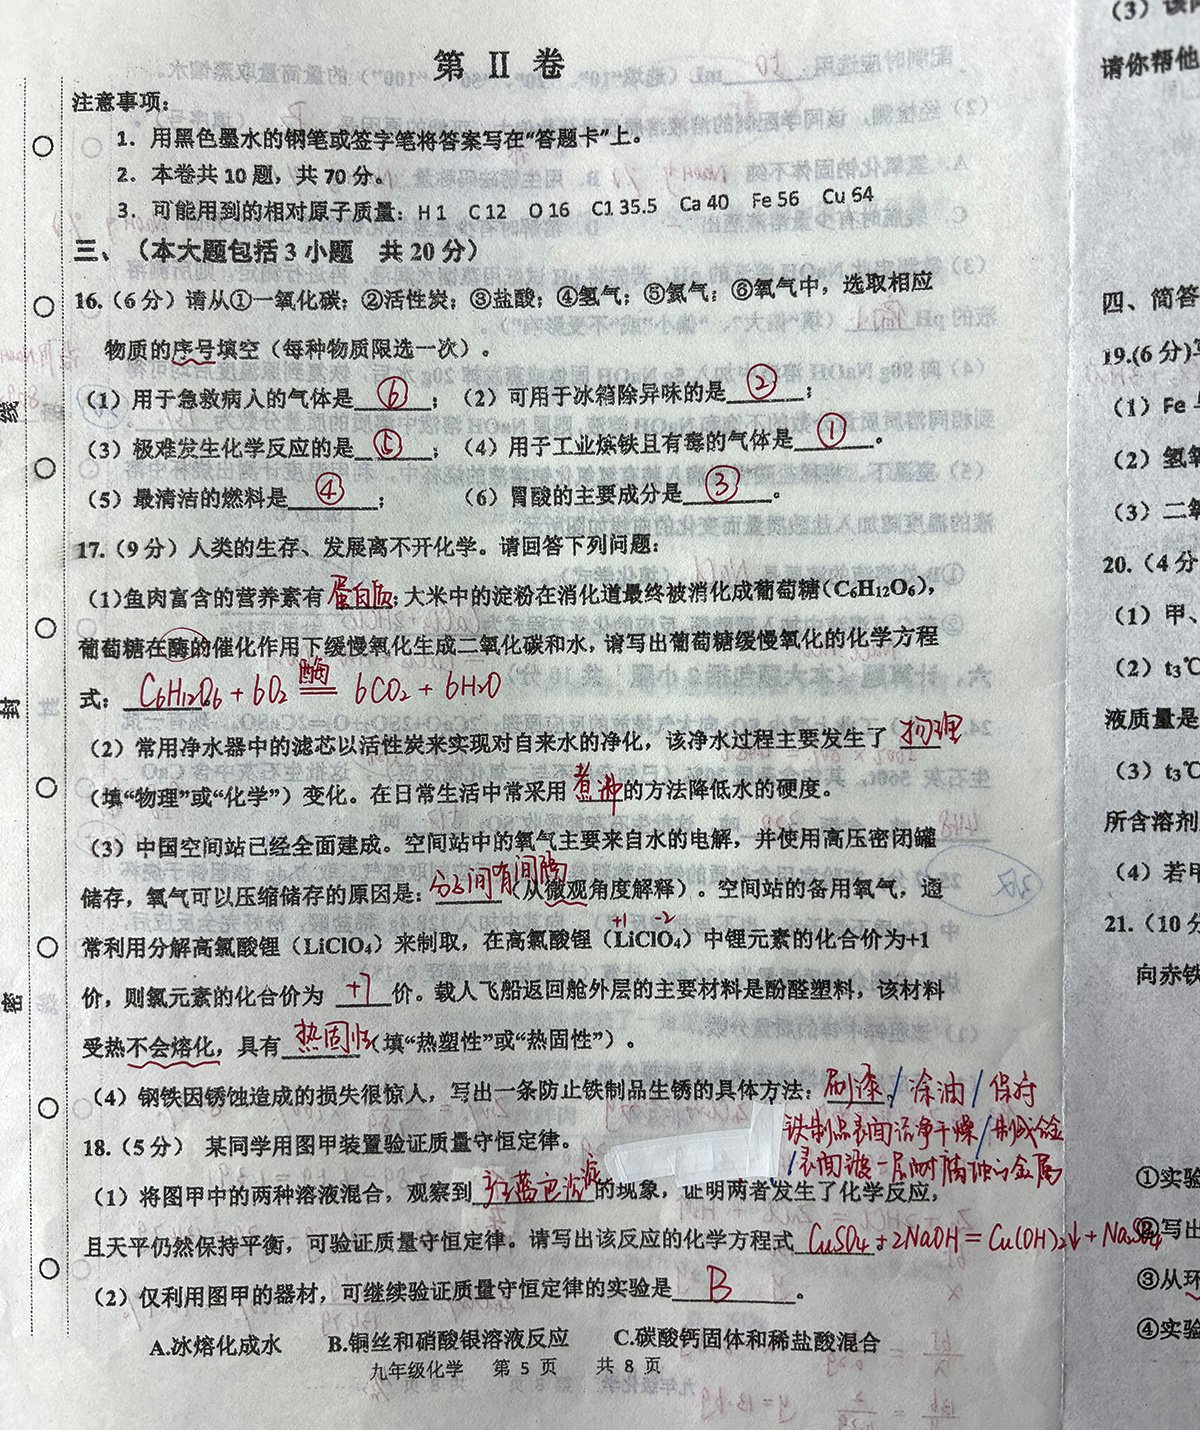 第 II 卷
注意事项：
1. 用黑色墨水的钢笔或签字笔将答案写在“答题卡”上。
2. 本卷共10题，共70分。
3. 可能用到的相对原子质量：H 1 C 12 O 16 C1 35.5 Ca 40 Fe 56 Cu 64
三、（本大题包括3小题 共20分）
16.（6分）请从①一氧化碳；②活性炭；③盐酸；④氢气；⑤氮气；⑥氧气中，选取相应
物质的序号填空（每种物质限选一次）。
（1）用于急救病人的气体是 ⑥ ；（2）可用于冰箱除异味的是 ② ；
（3）极难发生化学反应的是 ⑤ ；（4）用于工业炼铁且有毒的气体是 ① 。
（5）最清洁的燃料是 ④ ；（6）胃酸的主要成分是 ③ 。
17.（9分）人类的生存、发展离不开化学。请回答下列问题：
（1）鱼肉富含的营养素有 蛋白质；大米中的淀粉在消化道最终被消化成葡萄糖（C₆H₁₂O₆），
葡萄糖在酶的催化作用下缓慢氧化生成二氧化碳和水，请写出葡萄糖缓慢氧化的化学方程
式：C₆H₁₂O₆ + 6O₂ 酶 == 6CO₂ + 6H₂O
（2）常用净水器中的滤芯以活性炭来实现对自来水的净化，该净水过程主要发生了 物理
（填“物理”或“化学”）变化。在日常生活中常采用 煮沸 的方法降低水的硬度。
（3）中国空间站已经全面建成。空间站中的氧气主要来自水的电解，并使用高压密闭罐
储存，氧气可以压缩储存的原因是：分子间有间隔（从微观角度解释）。空间站的备用氧气，通
+1 -2
常利用分解高氯酸锂（LiClO₄）来制取，在高氯酸锂（LiClO₄）中锂元素的化合价为+1
价，则氯元素的化合价为 +7 价。载人飞船返回舱外层的主要材料是酚醛塑料，该材料
受热不会熔化，具有 热固性（填“热塑性”或“热固性”）。
（4）钢铁因锈蚀造成的损失很惊人，写出一条防止铁制品生锈的具体方法：刷漆 / 涂油 / 保持
铁制品表面洁净干燥 / 制成合金
/ 表面镀一层耐腐蚀的金属
18.（5分） 某同学用图甲装置验证质量守恒定律。
（1）将图甲中的两种溶液混合，观察到 产生蓝色沉淀 的现象，证明两者发生了化学反应，
且天平仍然保持平衡，可验证质量守恒定律。请写出该反应的化学方程式 CuSO₄ + 2NaOH = Cu(OH)₂↓ + Na₂SO₄
（2）仅利用图甲的器材，可继续验证质量守恒定律的实验是 B 。
A.冰熔化成水 B.铜丝和硝酸银溶液反应 C.碳酸钙固体和稀盐酸混合
九年级化学 第 5 页 共 8 页
线
封
密
（3）
请你帮他
四、简答
19.(6分)
（1）Fe
（2）氢氧
（3）二
20.（4分
（1）甲、
（2）t₃℃
液质量是
（3）t₃℃
所含溶剂
（4）若甲
21.（10分
向赤铁
①实验
②写出
③从环
④实验